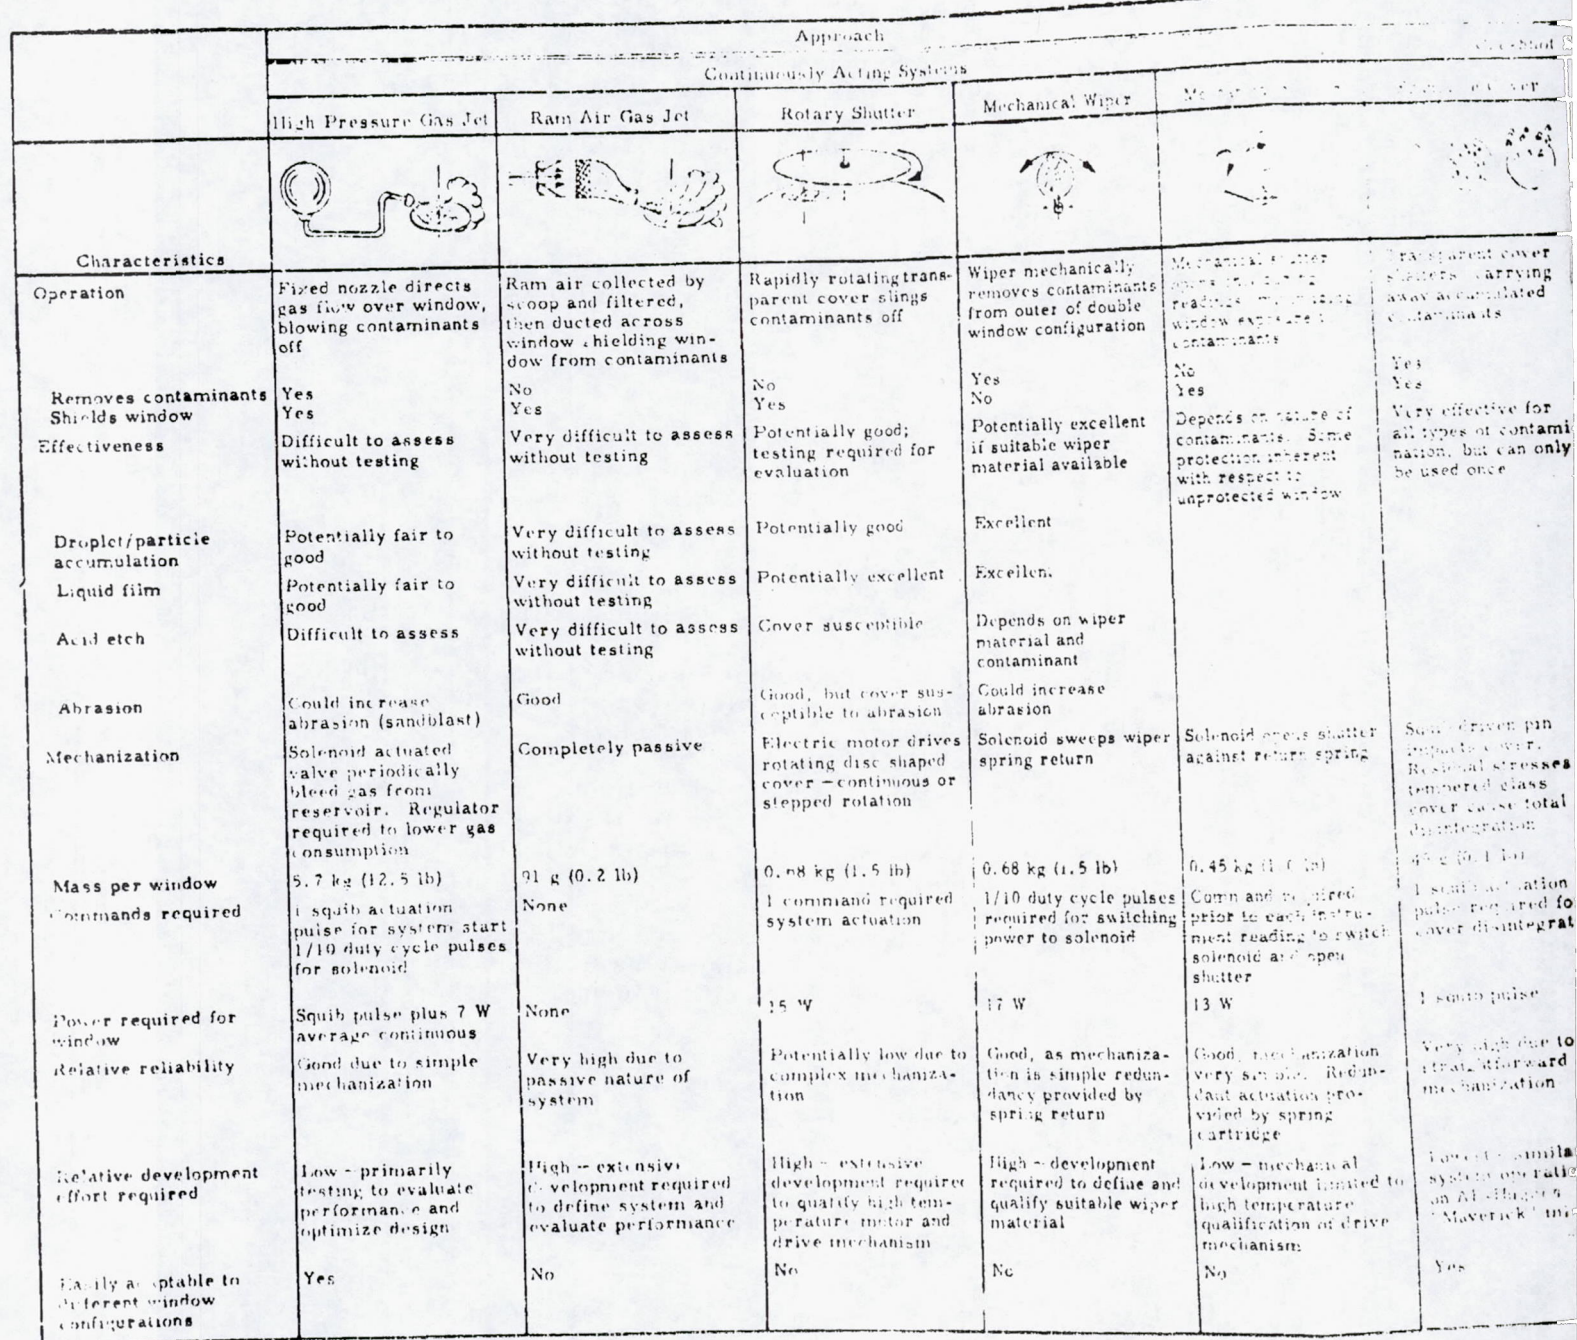 Approach
Continuously Acting Systems
High Pressure Gas Jet
Ram Air Gas Jet
Rotary Shutter
Mechanical Wiper
Characteristics
Operation
Fixed nozzle directs
gas flow over window,
blowing contaminants
off
Ram air collected by
scoop and filtered,
then ducted across
window shielding win-
dow from contaminants
Rapidly rotating trans-
parent cover slings
contaminants off
Wiper mechanically
removes contaminants
from outer of double
window configuration
Mechanical shutter
readings
window exposure
contaminants
Transparent cover
shatters carrying
away accumulated
contaminants
Removes contaminants
Yes
No
No
Yes
No
Yes
Shields window
Yes
Yes
Yes
No
Yes
Yes
Effectiveness
Difficult to assess
without testing
Very difficult to assess
without testing
Potentially good;
testing required for
evaluation
Potentially excellent
if suitable wiper
material available
Depends on nature of
contaminants. Some
protection inherent
with respect to
unprotected window
Very effective for
all types of contami
nation, but can only
be used once
Droplet/particle
accumulation
Potentially fair to
good
Very difficult to assess
without testing
Potentially good
Excellent
Liquid film
Potentially fair to
good
Very difficult to assess
without testing
Potentially excellent
Excellent
Acid etch
Difficult to assess
Very difficult to assess
without testing
Cover susceptible
Depends on wiper
material and
contaminant
Abrasion
Could increase
abrasion (sandblast)
Good
Good, but cover sus-
ceptible to abrasion
Could increase
abrasion
Mechanization
Solenoid actuated
valve periodically
bleed gas from
reservoir. Regulator
required to lower gas
consumption
Completely passive
Electric motor drives
rotating disc shaped
cover - continuous or
stepped rotation
Solenoid sweeps wiper
spring return
Solenoid opens shutter
against return spring
Squib driven pin
impacts cover.
Residual stresses
tempered glass
cover cause total
disintegration
Mass per window
5.7 kg (12.5 lb)
91 g (0.2 lb)
0.68 kg (1.5 lb)
0.68 kg (1.5 lb)
0.45 kg (1.0 lb)
45 g (0.1 lb)
Commands required
1 squib actuation
pulse for system start
1/10 duty cycle pulses
for solenoid
None
1 command required
system actuation
1/10 duty cycle pulses
required for switching
power to solenoid
Command required
prior to each instru-
ment reading to switch
solenoid and open
shutter
1 squib actuation
pulse required fo
cover disintegrat
Power required for
window
Squib pulse plus 7 W
average continuous
None
15 W
17 W
13 W
1 squib pulse
Relative reliability
Good due to simple
mechanization
Very high due to
passive nature of
system
Potentially low due to
complex mechaniza-
tion
Good, as mechaniza-
tion is simple redun-
dancy provided by
spring return
Good, mechanization
very simple. Redun-
dant actuation pro-
vided by spring
cartridge
Very high due to
straightforward
mechanization
Relative development
effort required
Low - primarily
testing to evaluate
performance and
optimize design
High - extensive
development required
to define system and
evaluate performance
High - extensive
development required
to qualify high tem-
perature motor and
drive mechanism
High - development
required to define and
qualify suitable wiper
material
Low - mechanical
development limited to
high temperature
qualification of drive
mechanism
simila
system operati
on
"Maverick"
Easily adaptable to
different window
configurations
Yes
No
No
No
No
Yes